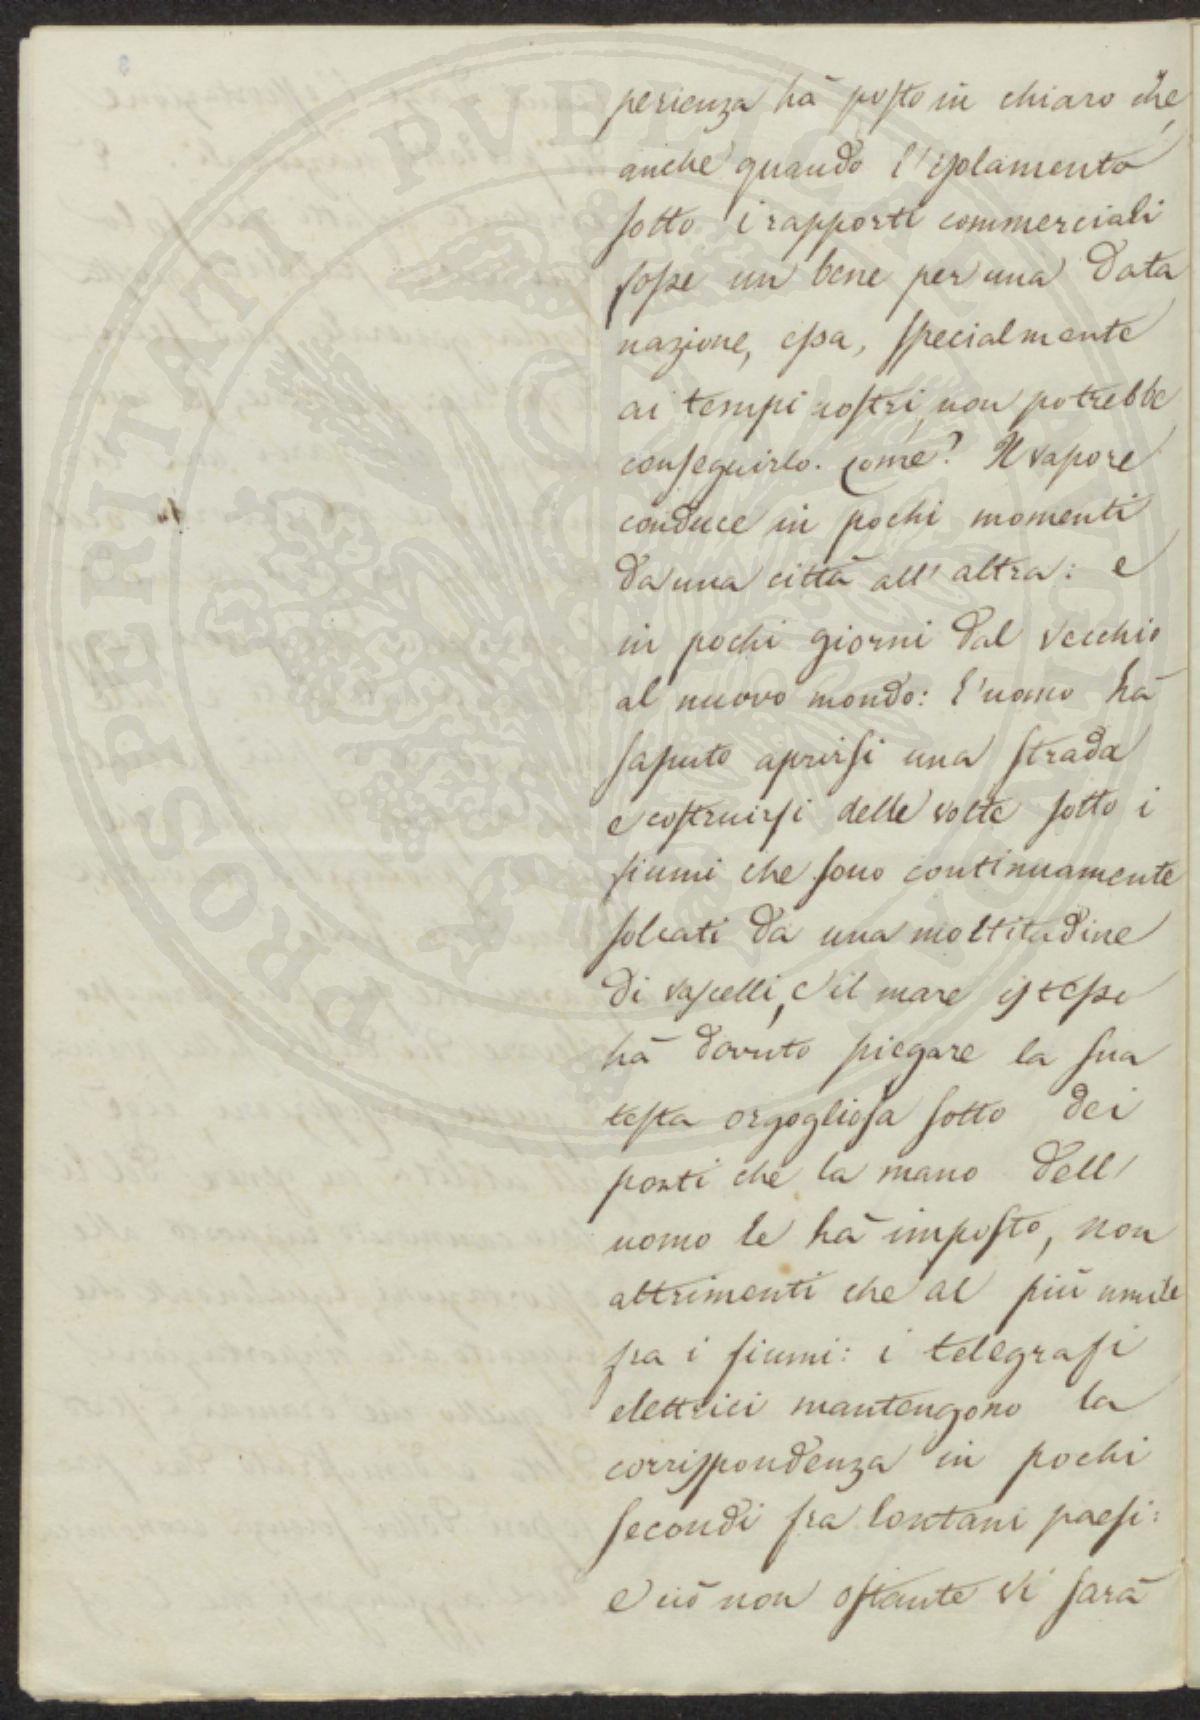 perienza hà posto in chiaro che,
anche quando l'isolamento
sotto i rapporti commerciali
fosse un bene per una data
nazione, essa, specialmente
ai tempi nostri, non potrebbe
conseguirlo. Come? Il vapore
conduce in pochi momenti
da una città all'altra: e
in pochi giorni dal vecchio
al nuovo mondo: l'uomo hà
saputo aprirsi una strada
e costruirsi delle volte sotto i
fiumi che sono continuamente
solcati da una moltitudine
di vascelli, e il mare istesso
hà dovuto piegare la sua
testa orgogliosa sotto dei
ponti che la mano dell'
uomo le hà imposto, non
altrimenti che al più umile
fra i fiumi: i telegrafi
elettrici mantengono la
corrispondenza in pochi
secondi fra lontani paesi:
e ciò non ostante vi sarà
PROSPERITATI PUBLICAE